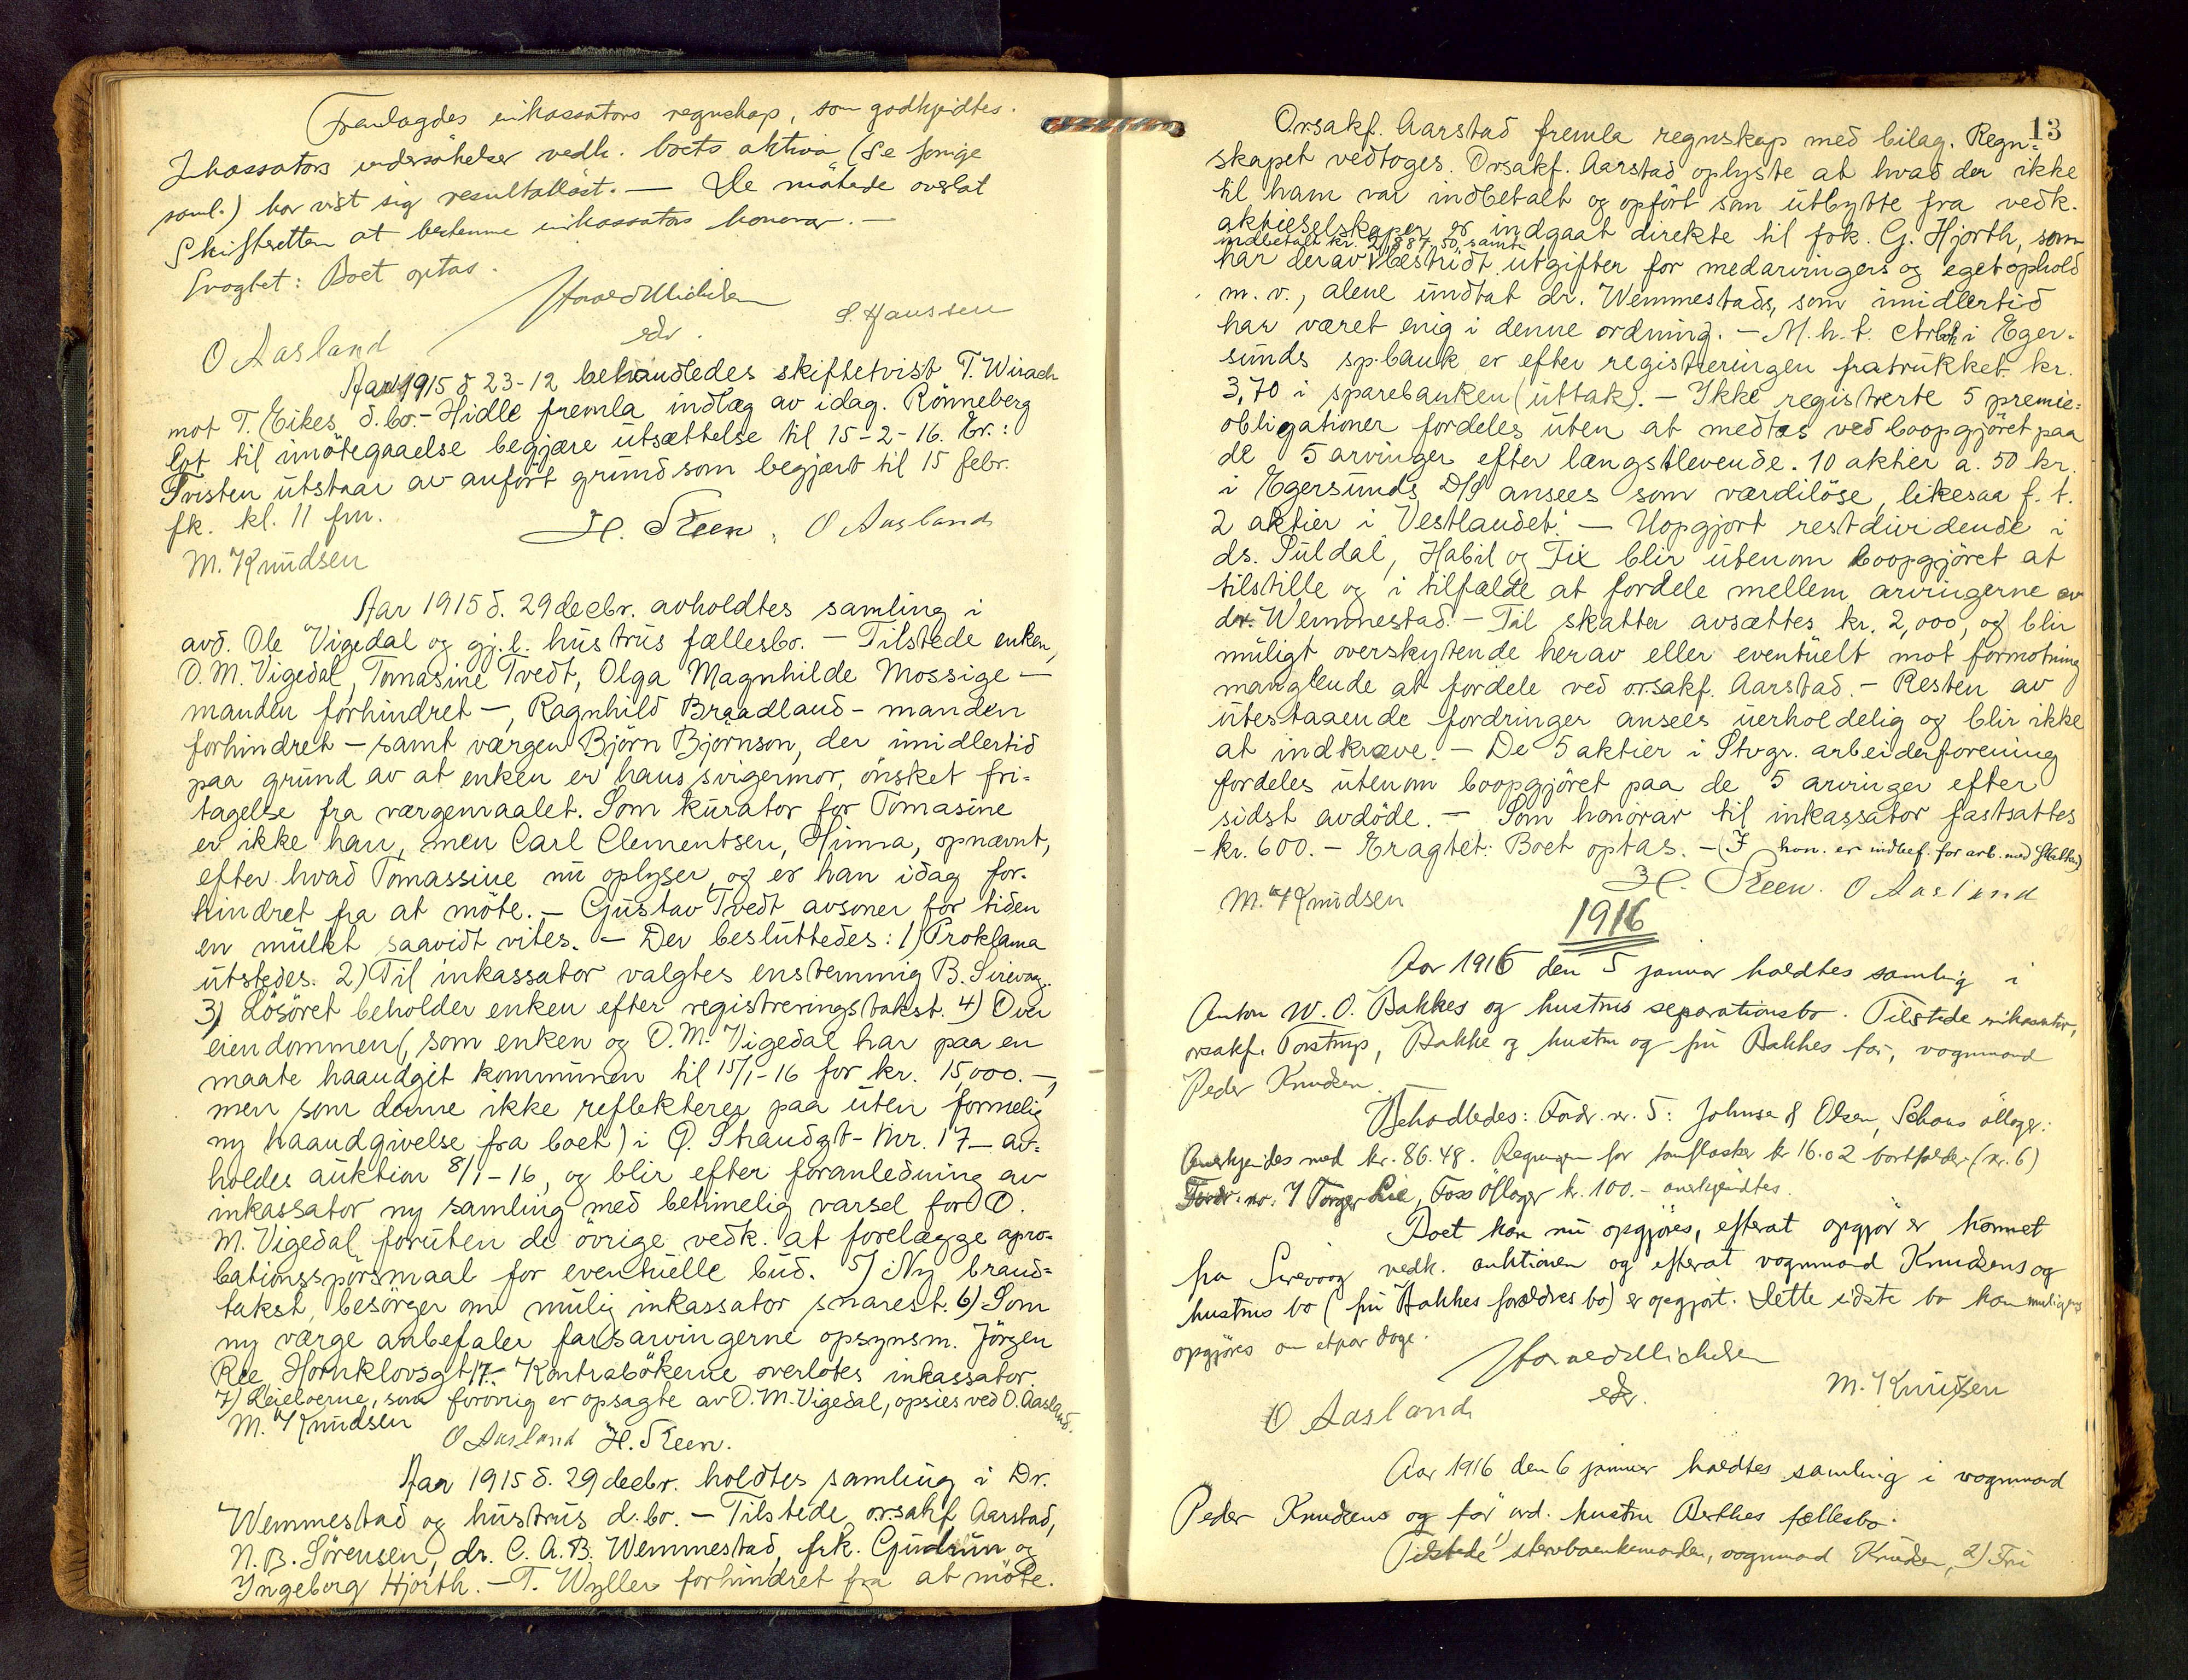 Fremlagdes inkassators regnskap, som godkjendtes.
Inkassators undersökelser vedk. boets aktiva (se forrige
saml.) har vist sig resultatlöst. — De mötende overlot
Skifteretten at bestemme inkassators honorar. —
Eragtet: Boet optas.
S. Hanssen
edr.
O Aasland
Aar 1915 d 23-12 behandledes skiftetvist T. Wirach
mot T. Eikes d.bo. - Hidle fremla indlæg av idag. Rönneberg
lot til imötegaaelse begjære utsættelse til 15-2-16. Er.:
Tvisten utstaar av anfört grund som begjært til 15 febr.
fk. kl. 11 fm.
H. Steen, O Aasland
M. Knudsen
Aar 1915 d. 29 decbr. avholdtes samling i
avd. Ole Vigedal og gj.l. hustrus fællesbo. — Tilstede enken,
O. M. Vigedal, Tomasine Tvedt, Olga Magnhilde Mossige —
manden forhindret —, Ragnhild Braadland - manden
forhindret — samt værgen Björn Björnson, der imidlertid
paa grund av at enken er hans svigermor, önsket fri-
tagelse fra værgemaalet. Som kurator for Tomasine
er ikke han, men Carl Clementsen, Hinna, opnævnt,
efter hvad Tomassine nu oplyser, og er han idag for-
hindret fra at möte. — Gustav Tvedt avsoner for tiden
en mulkt saavidt vites. — Der besluttedes: 1) Proklama
utstedes. 2) Til inkassator valgtes enstemmig B. Sirevaag.
3) Lösöret beholder enken efter registreringstakst. 4) Over
eiendommen (, som enken og O. M. Vigedal har paa en
maate haandgit kommunen til 15/1-16 for kr. 15,000.—,
men som denne ikke reflekterer paa uten formelig
ny haandgivelse fra boet) i Ö. Strandgt - nr. 17 — av-
holdes auktion 8/1-16, og blir efter foranledning av
inkassator ny samling med betimelig varsel for O.
M. Vigedal foruten de övrige vedk. at forelægge apro-
bationsspörsmaal for eventuelle bud. 5) Ny brand-
takst, besörger om mulig inkassator snarest. 6) Som
ny værge anbefaler farsarvingerne opsynsm. Jörgen
Ree, Hornklovsgt 17. - Kontrabökerne overlotes inkassator.
7) Leieboerne, som forövrig er opsagte av O. M. Vigedal, opsies ved O. Aasland.
M. Knudsen O Aasland H. Steen.
Aar 1915 d. 29 decbr. holdtes samling i Dr.
Wemmestad og hustrus d.bo. — Tilstede orsakf. Aarstad,
N. B. Sörensen, dr. C. A. B. Wemmestad, frk. Gudrun og
Yngeborg Hjorth. — T. Wyller forhindret fra at möte.
13
Orsakf. Aarstad fremla regnskap med bilag. Regn-
skapet vedtoges. Orsakf. Aarstad oplyste at hvad der ikke
til ham var indbetalt og opfört som utbytte fra vedk.
aktieselskaper er indgaat direkte til frk. G. Hjorth, som
indbetalt kr. 2,887.50, samt
har derav bestridt utgifter for medarvingers og eget ophold
m.v., alene undtat dr. Wemmestads, som imidlertid
har været enig i denne ordning. — M.h.t. ctrbok i Eger-
sunds sp.bank er efter registreringen fratrukket kr.
3,70 i sparebanken (uttak). — Ikke registrerte 5 premie-
obligationer fordeles uten at medtas ved boopgjöret paa
de 5 arvinger efter længstlevende. 10 aktier a. 50 kr.
i Egersunds D/S ansees som værdilöse, likesaa f.t.
2 aktier i "Vestlandet". — Uopgjort restdividende i
ds. Suldal, Habil og Fix blir utenom boopgjöret at
tilstille og i tilfælde at fordele mellem arvingerne av
dr. Wemmestad. — Til skatter avsættes kr. 2,000, og blir
muligt overskytende herav eller eventuelt mot formotning
manglende at fordele ved orsakf. Aarstad. — Resten av
utestaaende fordringer ansees uerholdelig og blir ikke
at indkræve. — De 5 aktier i Stvgr. arbeiderforening
fordeles utenom boopgjöret paa de 5 arvinger efter
sidst avdöde. — Som honorar til inkassator fastsattes
kr. 600. — Eragtet: Boet optas. — (I hon. er indbef. for arb. med skatten)
H. Steen. O Aasland
M. Knudsen
1916
Aar 1916 den 5 januar holdtes samling i
Anton W. O. Bakkes og hustrus separationsbo. Tilstede inkassator,
orsakf. Torstrup, Bakke og hustru og fru Bakkes far, vognmand
Peder Knudsen.
Behandledes: Fordr. nr. 5: Johnsen & Olsen, Schous öllager:
Anerkjendes med kr. 86.48. Regningen for tomflasker kr 16.02 bortfalder (nr. 6)
Fordr. nr. 7 Torger Lie, Foss Öllager kr. 100. — anerkjendtes.
Boet kan nu opgjöres, efterat opgjör er kommet
fra Sirevaag vedk. auktionen og efterat vognmand Knudsens og
hustrus bo (fru Bakkes forældres bo) er opgjort. Dette sidste bo kan muligens
opgjöres om etpar dage.
edr.
M. Knudsen
O Aasland
Aar 1916 den 6 januar holdtes samling i vognmand
Peder Knudsens og før avd. hustru Berthes fællesbo.
Tilstede 1) stervboenkemanden, vognmand Knudsen, 2) Fru